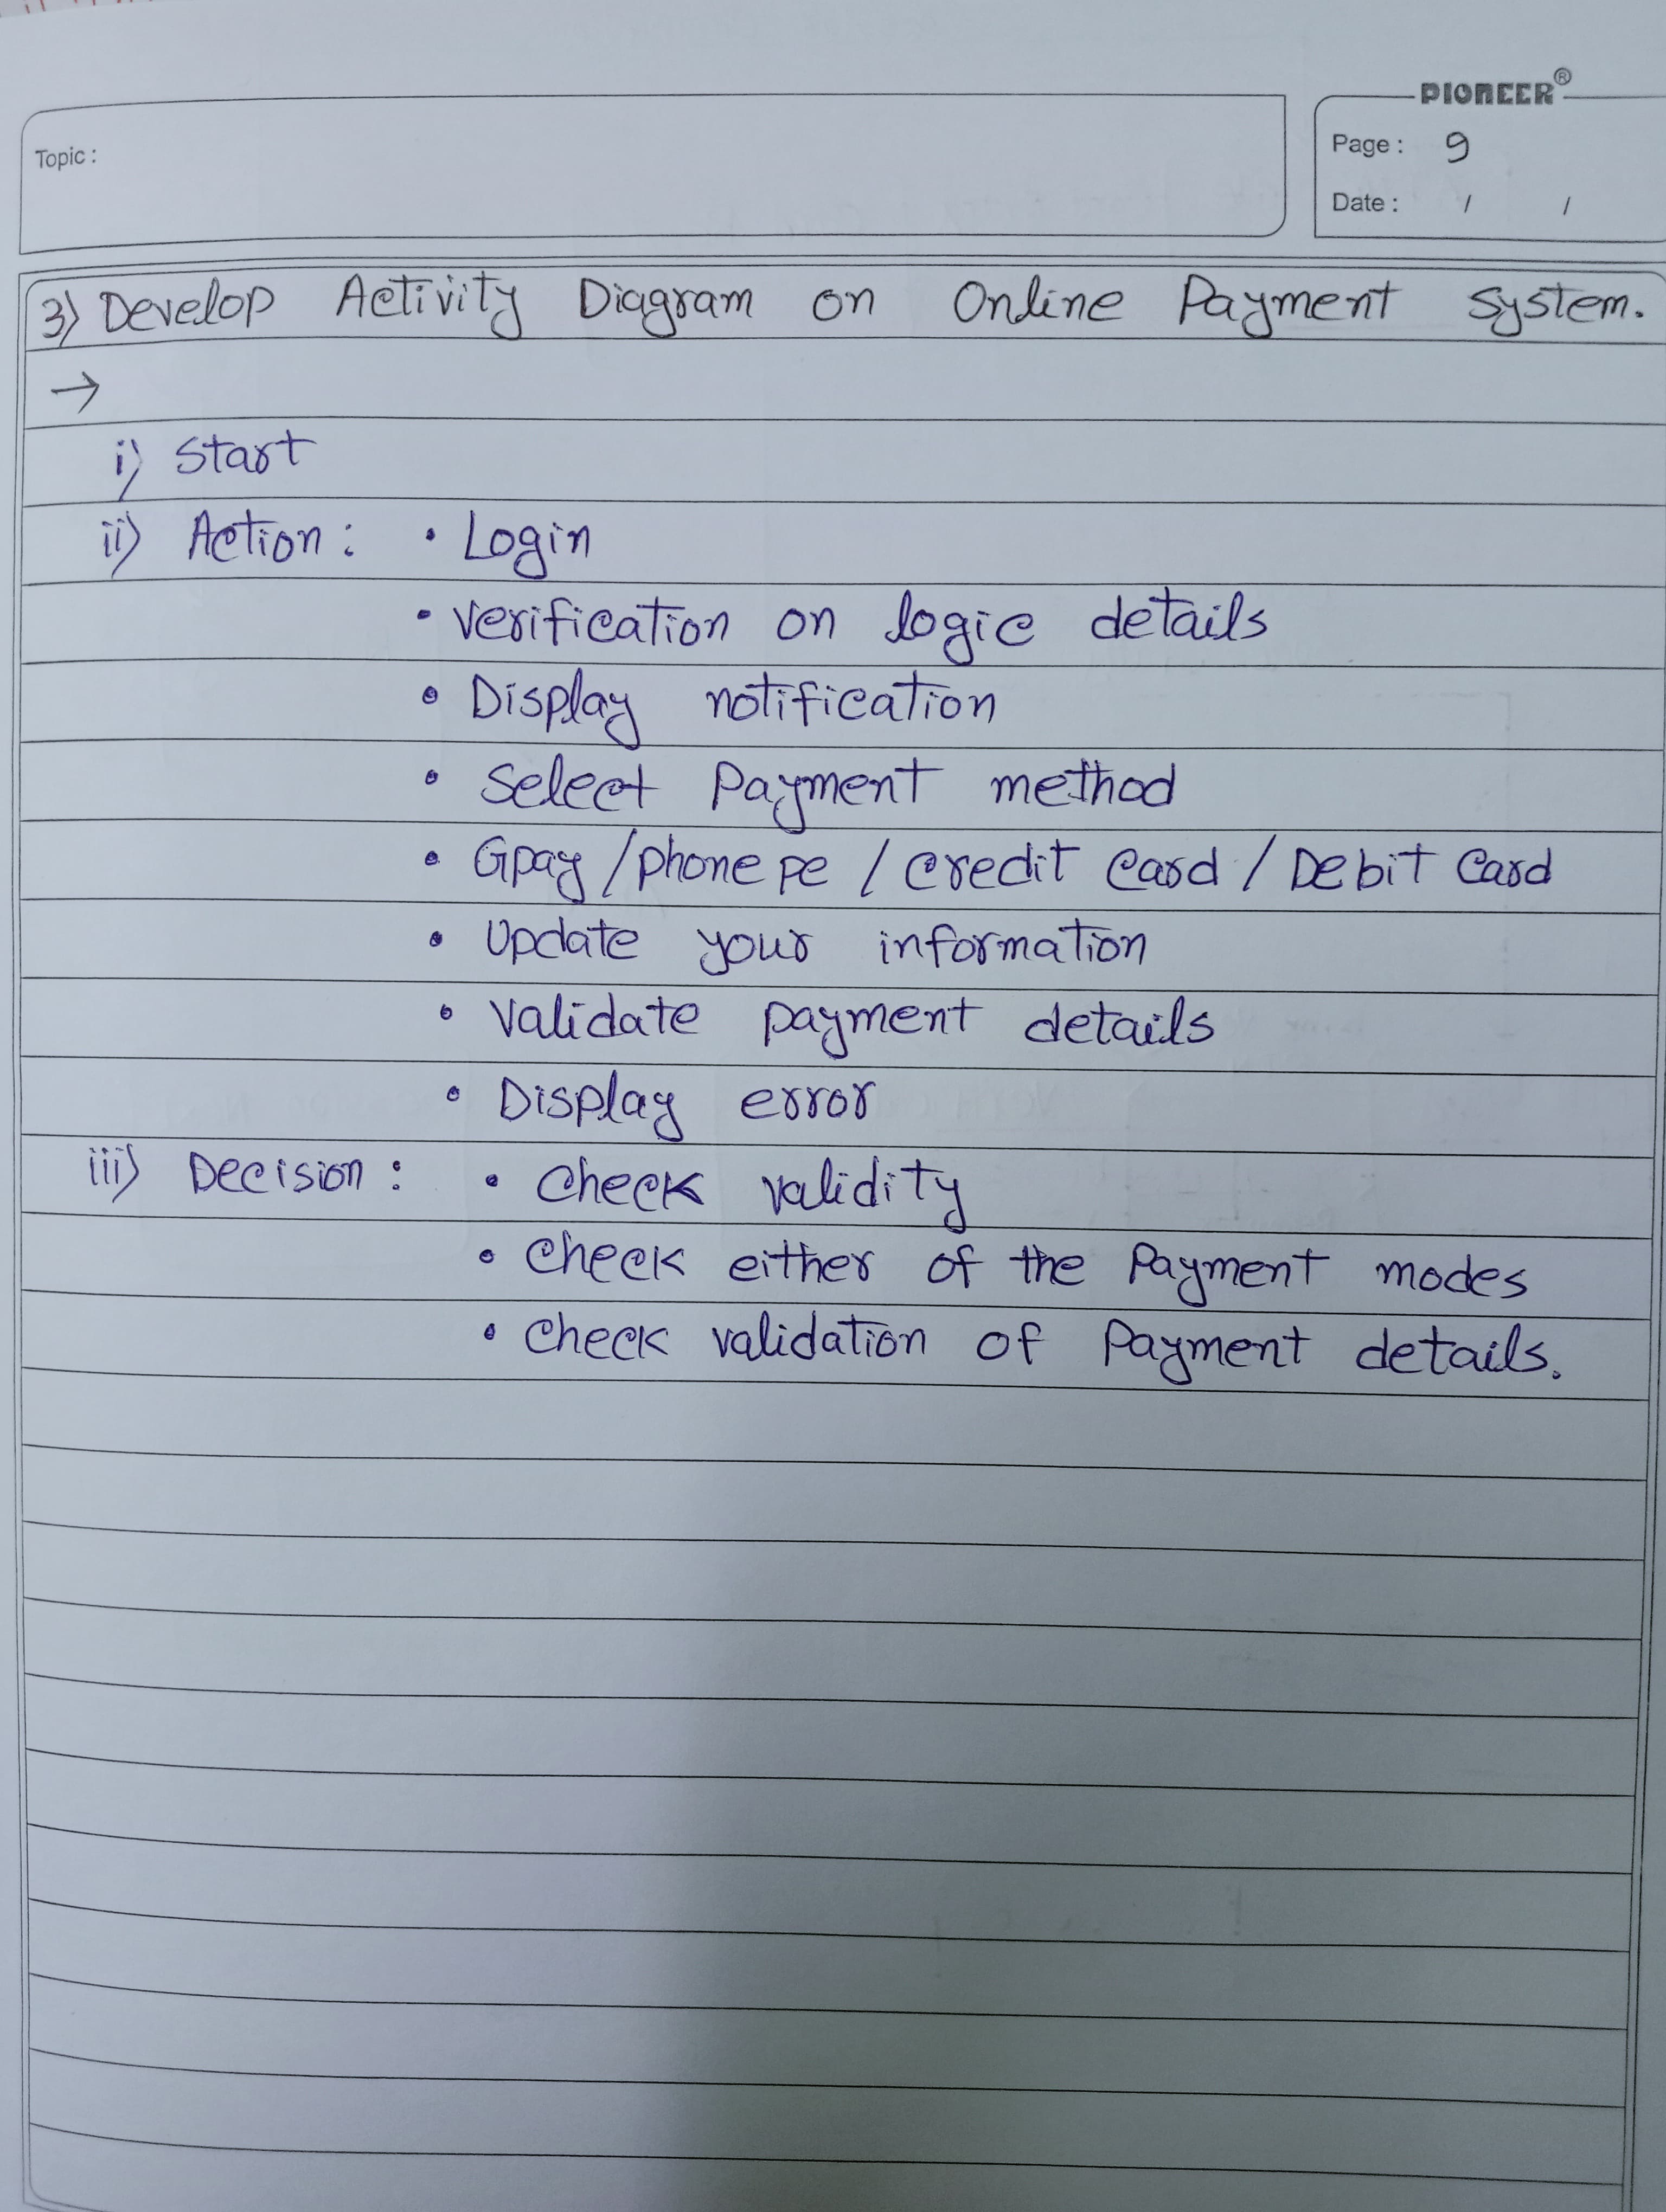 PIONEER®
Topic :
Page : 9
Date : / /
3) Develop Activity Diagram on Online Payment System.
→
i) Start
ii) Action : • Login
• Verification on logic details
• Display notification
• Select Payment method
• Gpay / phone pe / credit card / Debit Card
• Update your information
• Validate payment details
• Display error
iii) Decision : • Check validity
• Check either of the Payment modes
• Check validation of Payment details.